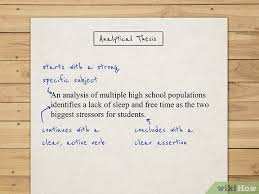 Analytical Thesis
starts with a strong,
specific subject
An analysis of multiple high school populations
identifies a lack of sleep and free time as the two
biggest stressors for students.
continues with a
clear, active verb
concludes with a
clear assertion
wikiHow